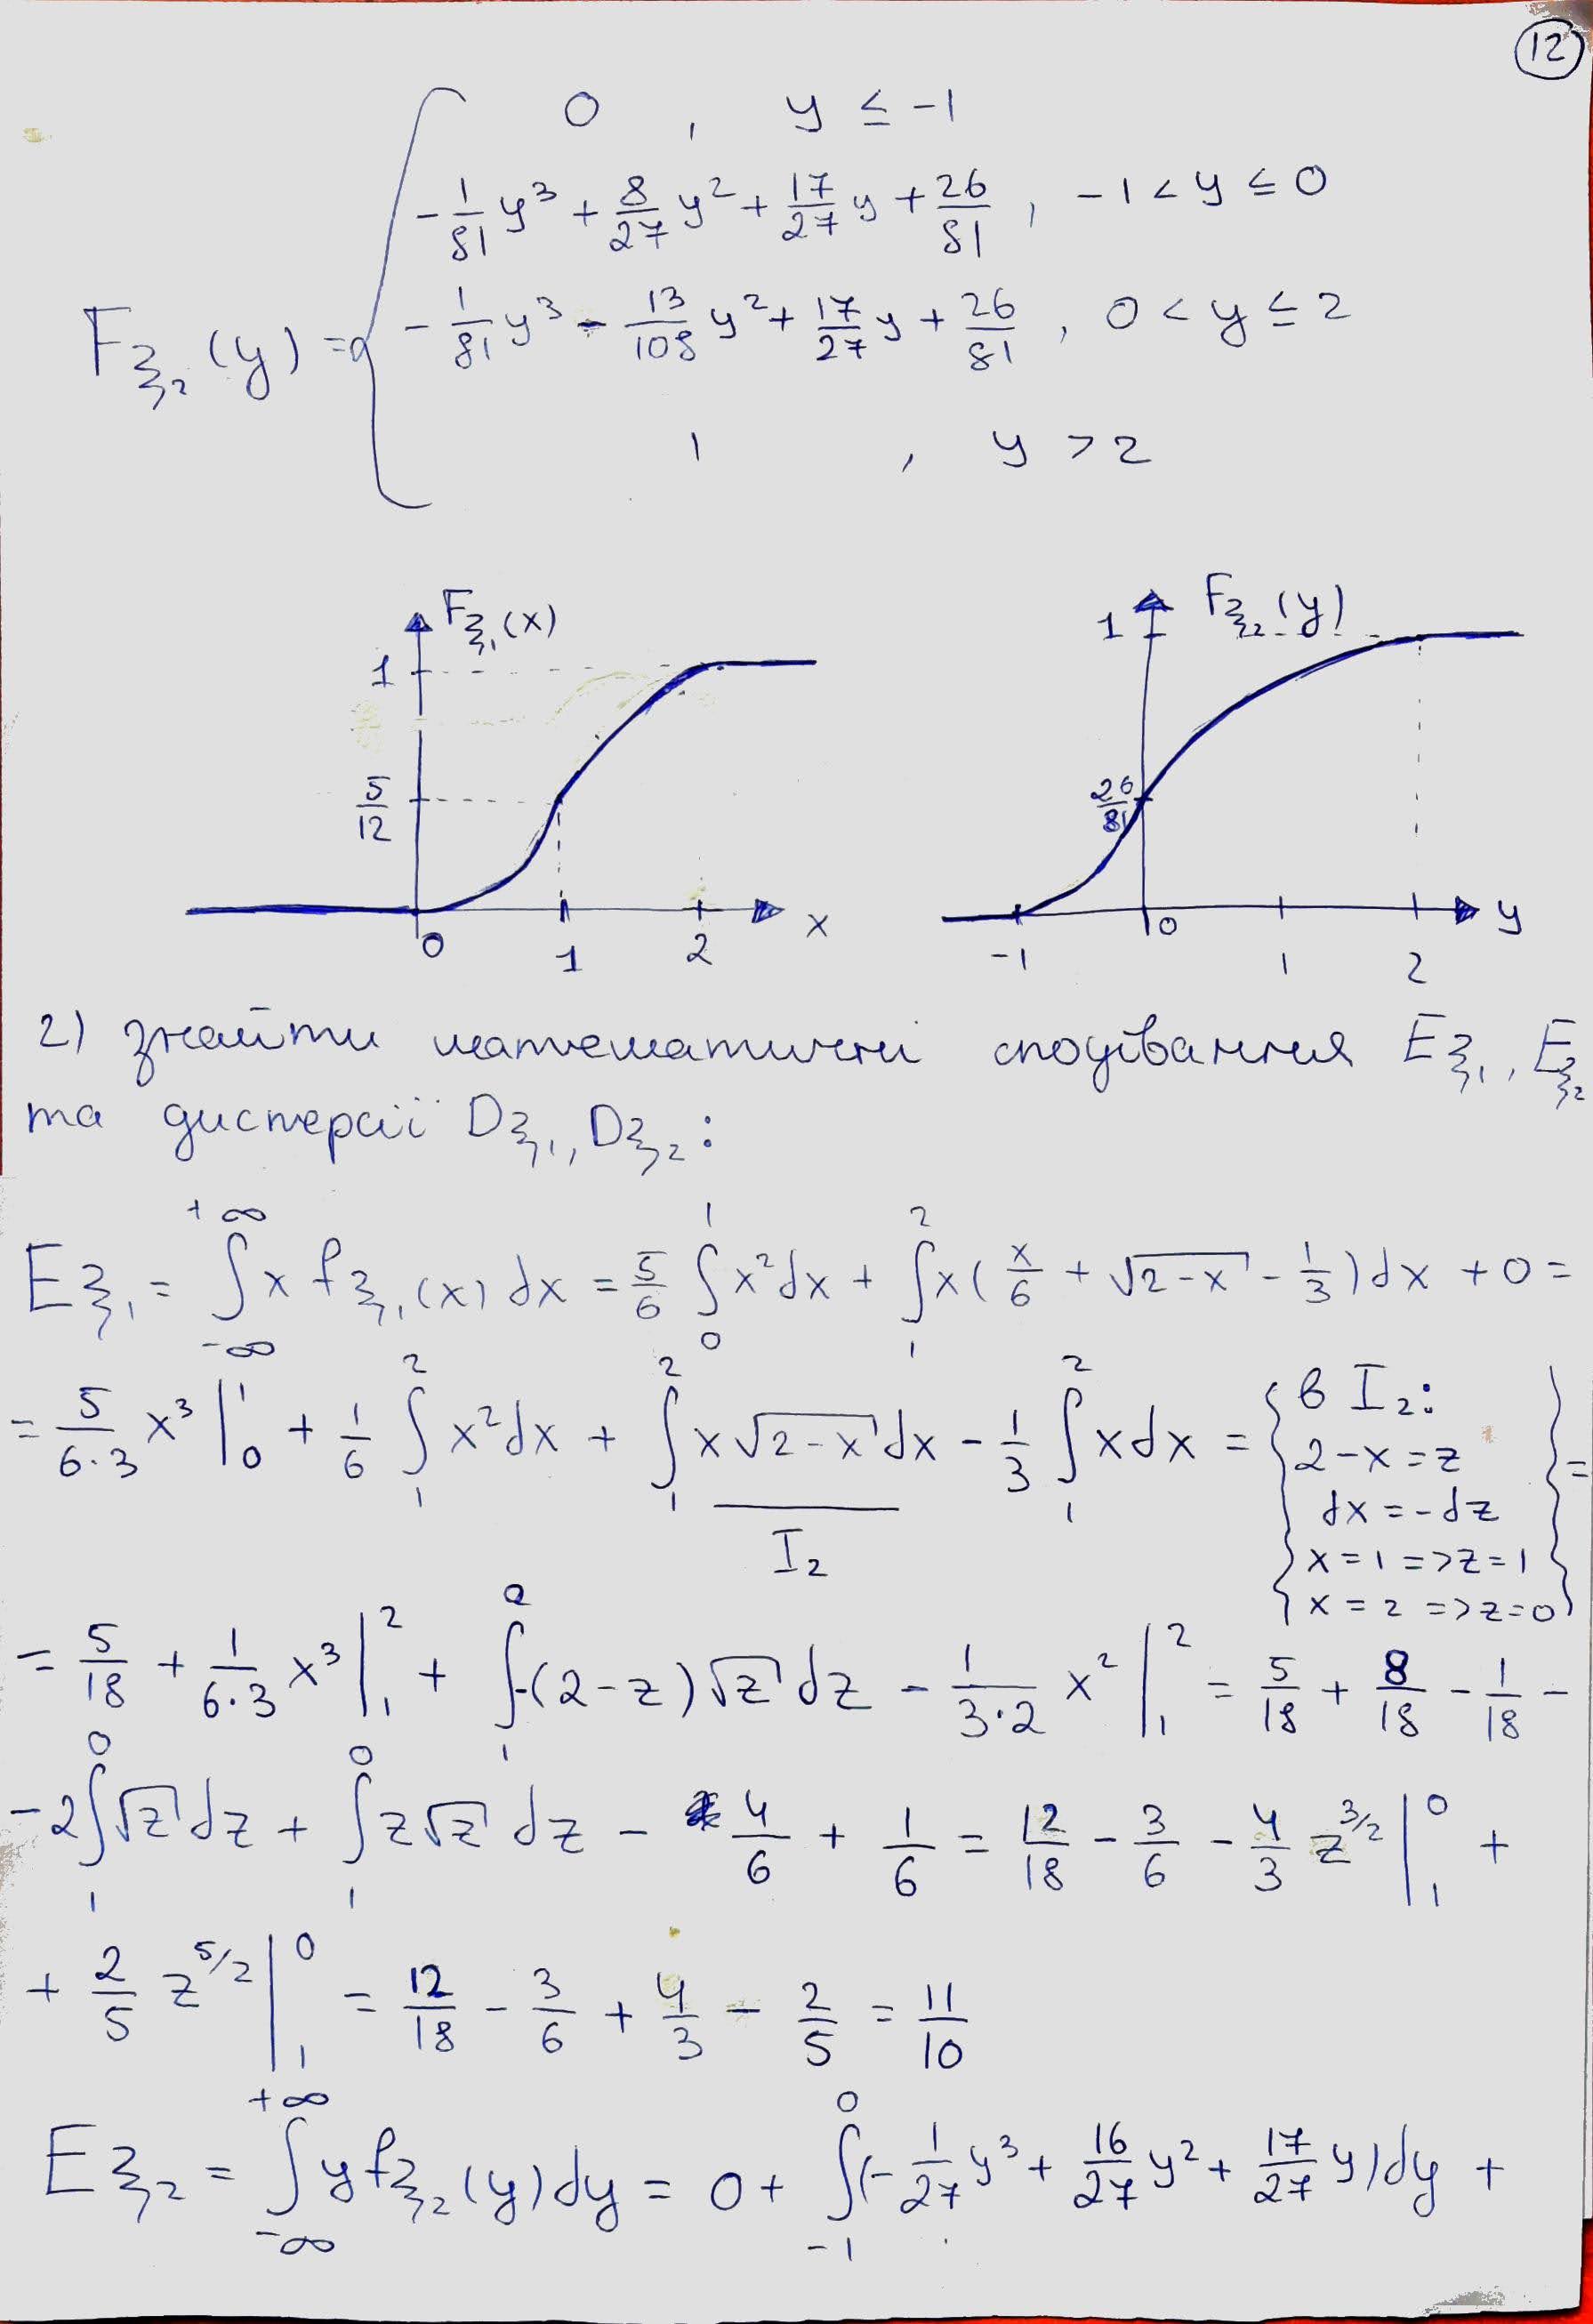 12
F_{ξ₂}(y) = {
0 , y ≤ -1
-1/81 y³ + 8/27 y² + 17/27 y + 26/81 , -1 < y ≤ 0
-1/81 y³ - 13/108 y² + 17/27 y + 26/81 , 0 < y ≤ 2
1 , y > 2
F_{ξ₁}(x)
1
5/12
0 1 2 x
F_{ξ₂}(y)
1
26/81
-1 0 1 2 y
2) знайти математичні сподівання Eξ₁, Eξ₂
та дисперсії Dξ₁, Dξ₂:
Eξ₁ = ∫_{-∞}^{+∞} x f_{ξ₁}(x) dx = 5/6 ∫_0^1 x² dx + ∫_1^2 x(x/6 + √(2-x) - 1/3) dx + 0 =
= 5/(6·3) x³ |_0^1 + 1/6 ∫_1^2 x² dx + ∫_1^2 x√(2-x) dx - 1/3 ∫_1^2 x dx = { в I₂:
2-x = z
dx = -dz
x = 1 => z = 1
x = 2 => z = 0 } =
I₂
= 5/18 + 1/(6·3) x³ |_1^2 + ∫_1^0 -(2-z)√z dz - 1/(3·2) x² |_1^2 = 5/18 + 8/18 - 1/18 -
- 2∫_1^0 √z dz + ∫_1^0 z√z dz - 4/6 + 1/6 = 12/18 - 3/6 - 4/3 z^{3/2} |_1^0 +
+ 2/5 z^{5/2} |_1^0 = 12/18 - 3/6 + 4/3 - 2/5 = 11/10
Eξ₂ = ∫_{-∞}^{+∞} y f_{ξ₂}(y) dy = 0 + ∫_{-1}^0 (-1/27 y³ + 16/27 y² + 17/27 y) dy +